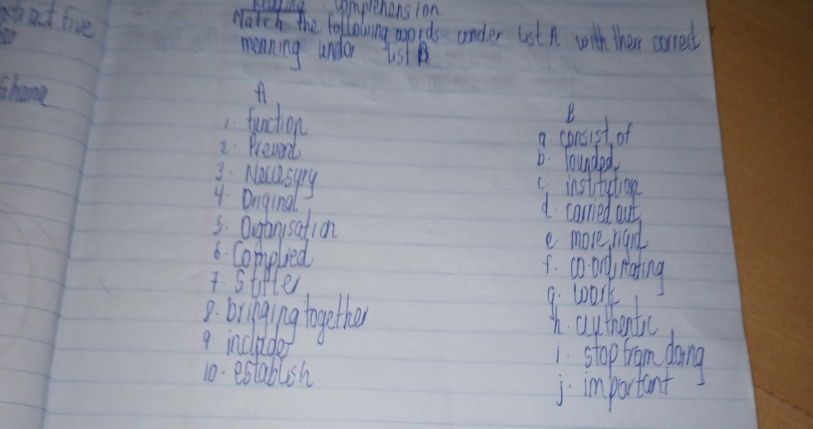 stract five
Ghana
Reading Comprehension
Match the following words under List A with their correct
meaning under list B
A
1. function
2. Prevent
3. Necessary
4. Original
5. Organisation
6. Complied
7. Stiffer
8. bringing together
9. include
10. establish
B
a. consist of
b. founded
c. institution
d. carried out
e. more rigid
f. co-ordinating
g. work
h. authentic
i. stop from doing
j. important